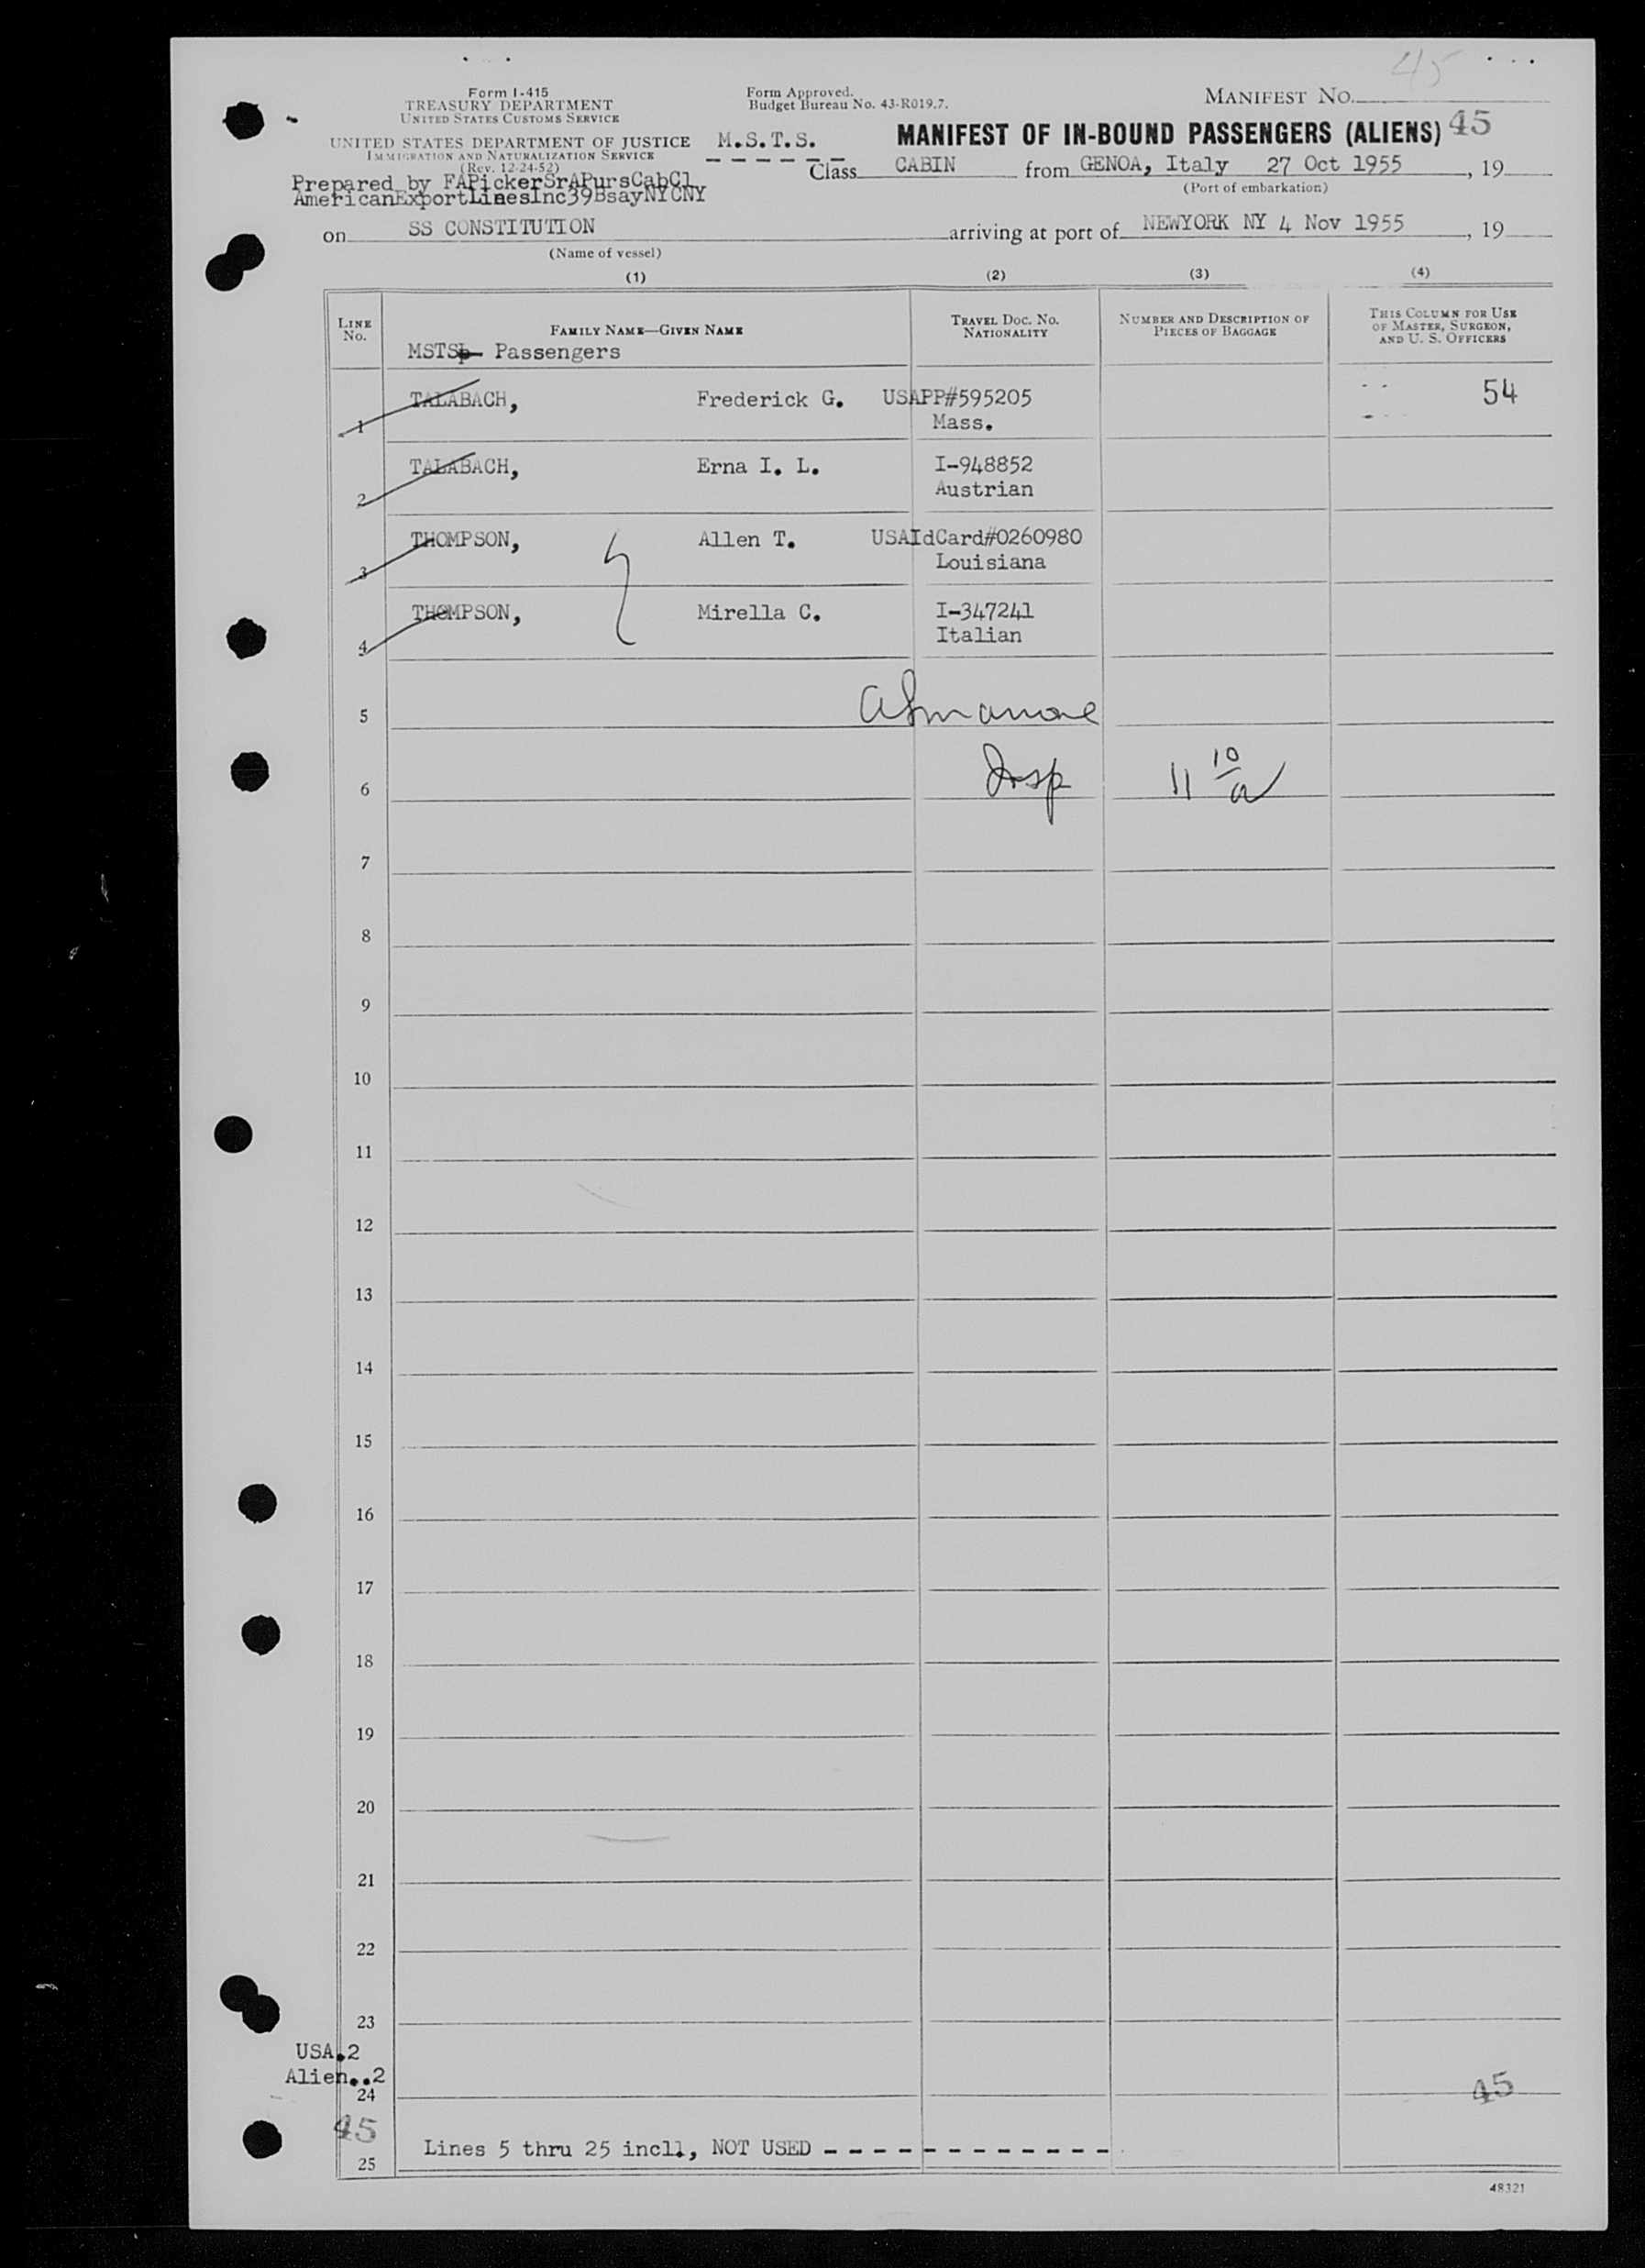 45
Form I-415
TREASURY DEPARTMENT
UNITED STATES CUSTOMS SERVICE
Form Approved.
Budget Bureau No. 43-R019.7.
MANIFEST NO.
UNITED STATES DEPARTMENT OF JUSTICE
IMMIGRATION AND NATURALIZATION SERVICE
(Rev. 12-24-52)
M.S.T.S.
MANIFEST OF IN-BOUND PASSENGERS (ALIENS) 45
Prepared by FAPickerSrAPursCabCl
AmericanExportLinesInc39BsayNYCNY
Class CABIN from GENOA, Italy 27 Oct 1955, 19
(Port of embarkation)
on SS CONSTITUTION arriving at port of NEWYORK NY 4 Nov 1955, 19
(Name of vessel)
(1) (2) (3) (4)
LINE No.
FAMILY NAME—GIVEN NAME
TRAVEL DOC. NO. NATIONALITY
NUMBER AND DESCRIPTION OF PIECES OF BAGGAGE
THIS COLUMN FOR USE OF MASTER, SURGEON, AND U. S. OFFICERS
MSTS Passengers
1 TALABACH, Frederick G. USAPP#595205 54
Mass.
2 TALABACH, Erna I. L. I-948852
Austrian
3 THOMPSON, Allen T. USAIdCard#0260980
Louisiana
4 THOMPSON, Mirella C. I-347241
Italian
5
6 Insp 11 10/a
7
8
9
10
11
12
13
14
15
16
17
18
19
20
21
22
23
USA.2
Alien..2
24 45
45
Lines 5 thru 25 incl., NOT USED - - - - - - - - - - - -
25
48321